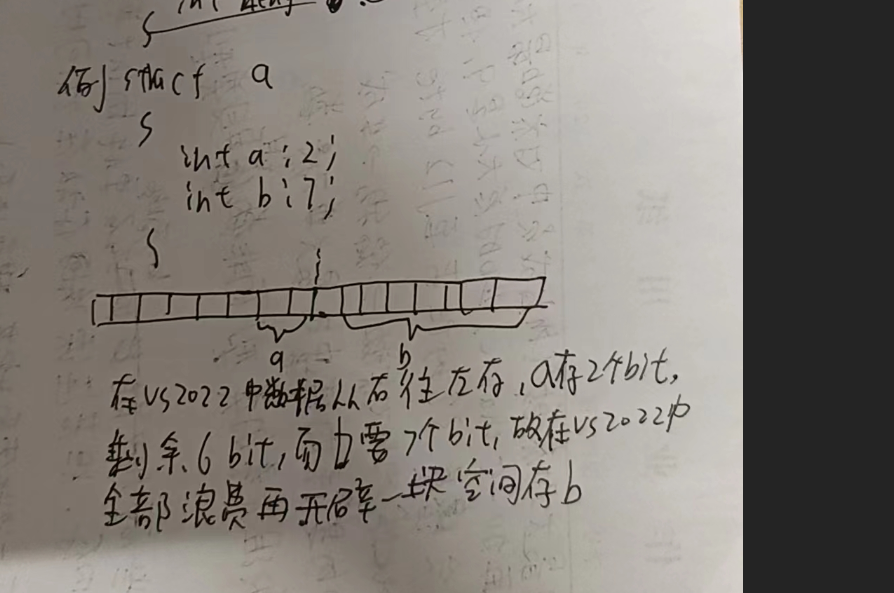 例 struct a
{
int a:2;
int b:7;
}
a
b
在VS2022中数据从右往左存,a存2个bit,
剩余6bit,而b需7个bit,故在VS2022中
全部浪费再开辟一块空间存b